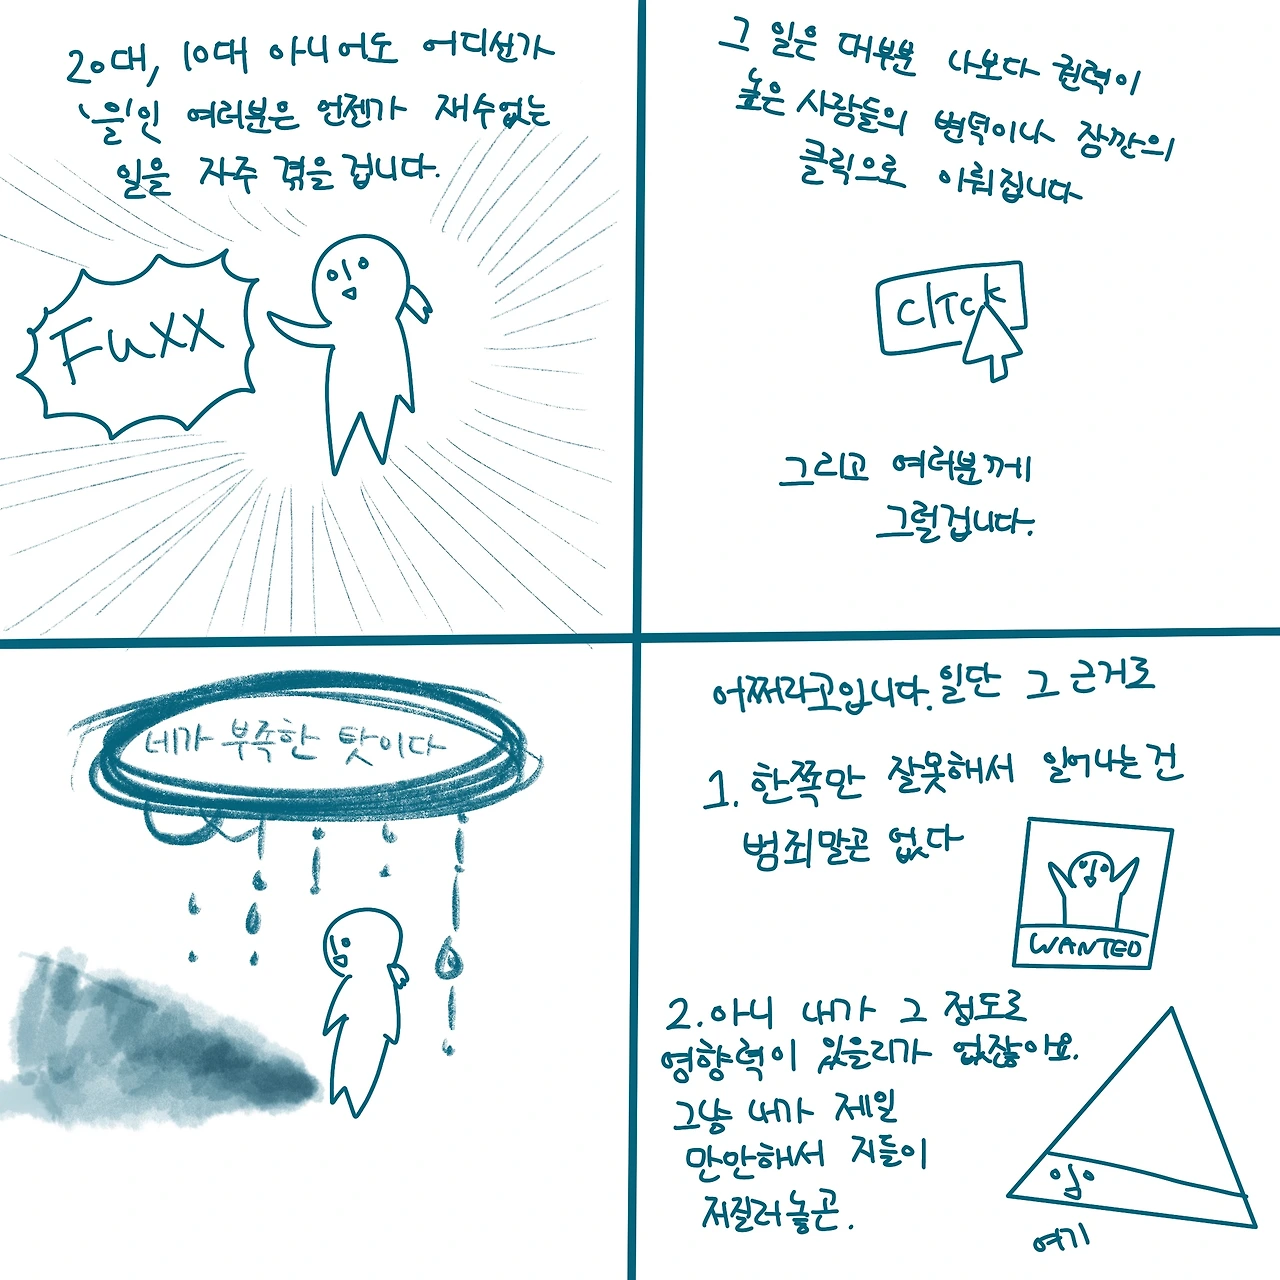 20대, 10대 아니어도 어디선가
'을'인 여러분은 언젠가 재수없는
일을 자주 겪을 겁니다.
Fuxx
그 일은 대부분 나보다 권력이
높은 사람들의 변덕이나 잠깐의
클릭으로 이뤄집니다
Click
그리고 여러분께
그럴겁니다.
네가 부족한 탓이다
어쩌라고입니다. 일단 그 근거로
1. 한쪽만 잘못해서 일어나는 건
범죄말곤 없다
WANTED
2. 아니 내가 그 정도로
영향력이 있을리가 없잖아요.
그냥 내가 제일
만만해서 지들이
저질러놓곤.
여기